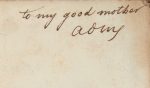 to my good mother